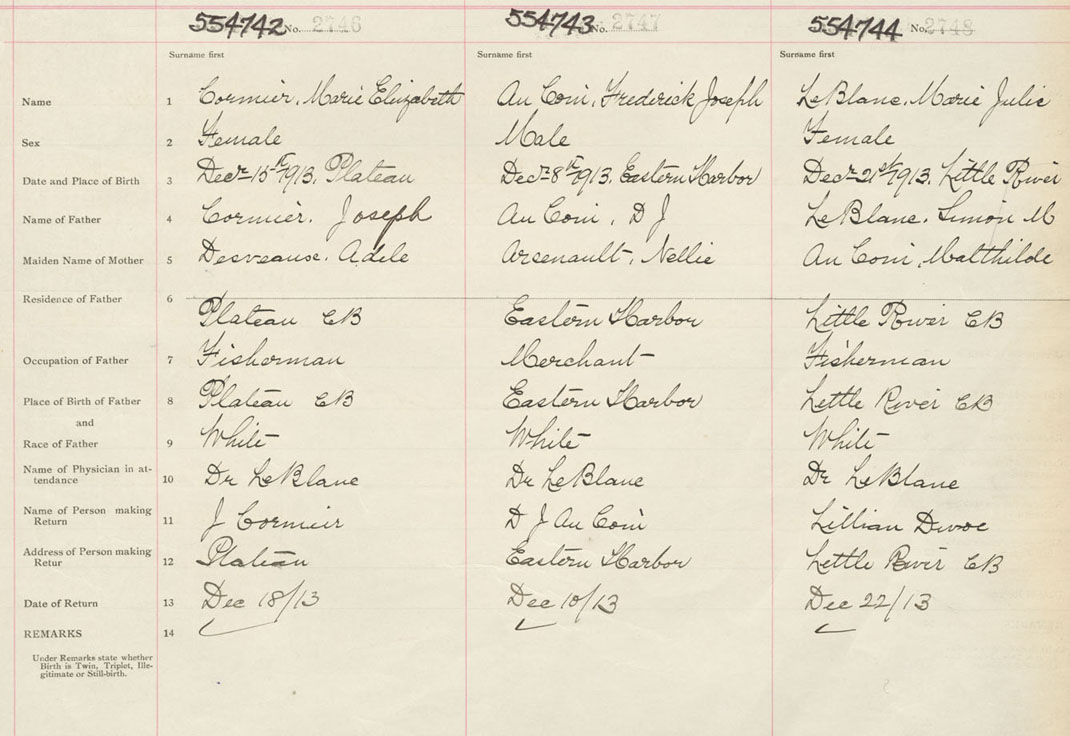 554742 No. 2746 554743 No. 2747 554744 No. 2748
Surname first Surname first Surname first
Name 1 Cormier, Marie Elizabeth Au Coin, Frederick Joseph LeBlanc, Marie Julie
Sex 2 Female Male Female
Date and Place of Birth 3 Decr 15th 1913, Plateau Decr 8th 1913, Eastern Harbor Decr 21st 1913, Little River
Name of Father 4 Cormier, Joseph Au Coin, D J LeBlanc, Simon M
Maiden Name of Mother 5 Desveause, Adele Arsenault, Nellie Au Coin, Malthilde
Residence of Father 6 Plateau CB Eastern Harbor Little River CB
Occupation of Father 7 Fisherman Merchant Fisherman
Place of Birth of Father 8 Plateau CB Eastern Harbor Little River CB
and
Race of Father 9 White White White
Name of Physician in at-
tendance 10 Dr LeBlanc Dr LeBlanc Dr LeBlanc
Name of Person making
Return 11 J Cormier D J Au Coin Lillian Devoe
Address of Person making
Retur 12 Plateau Eastern Harbor Little River CB
Date of Return 13 Dec 18/13 Dec 10/13 Dec 22/13
REMARKS 14
Under Remarks state whether
Birth is Twin, Triplet, Ille-
gitimate or Still-birth.